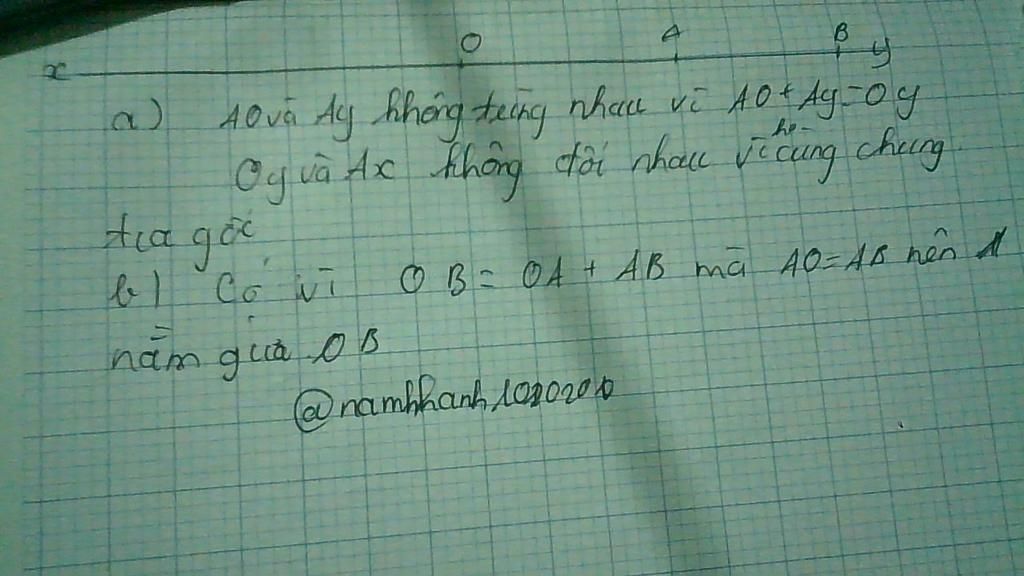 x O A B y
a) AO và Ay không trùng nhau vì AO + Ay = Oy
Oy và Ax không đối nhau vì ko cùng chung
tia gốc
b) Có vì OB = OA + AB mà AO = AB nên A
nằm giữa OB